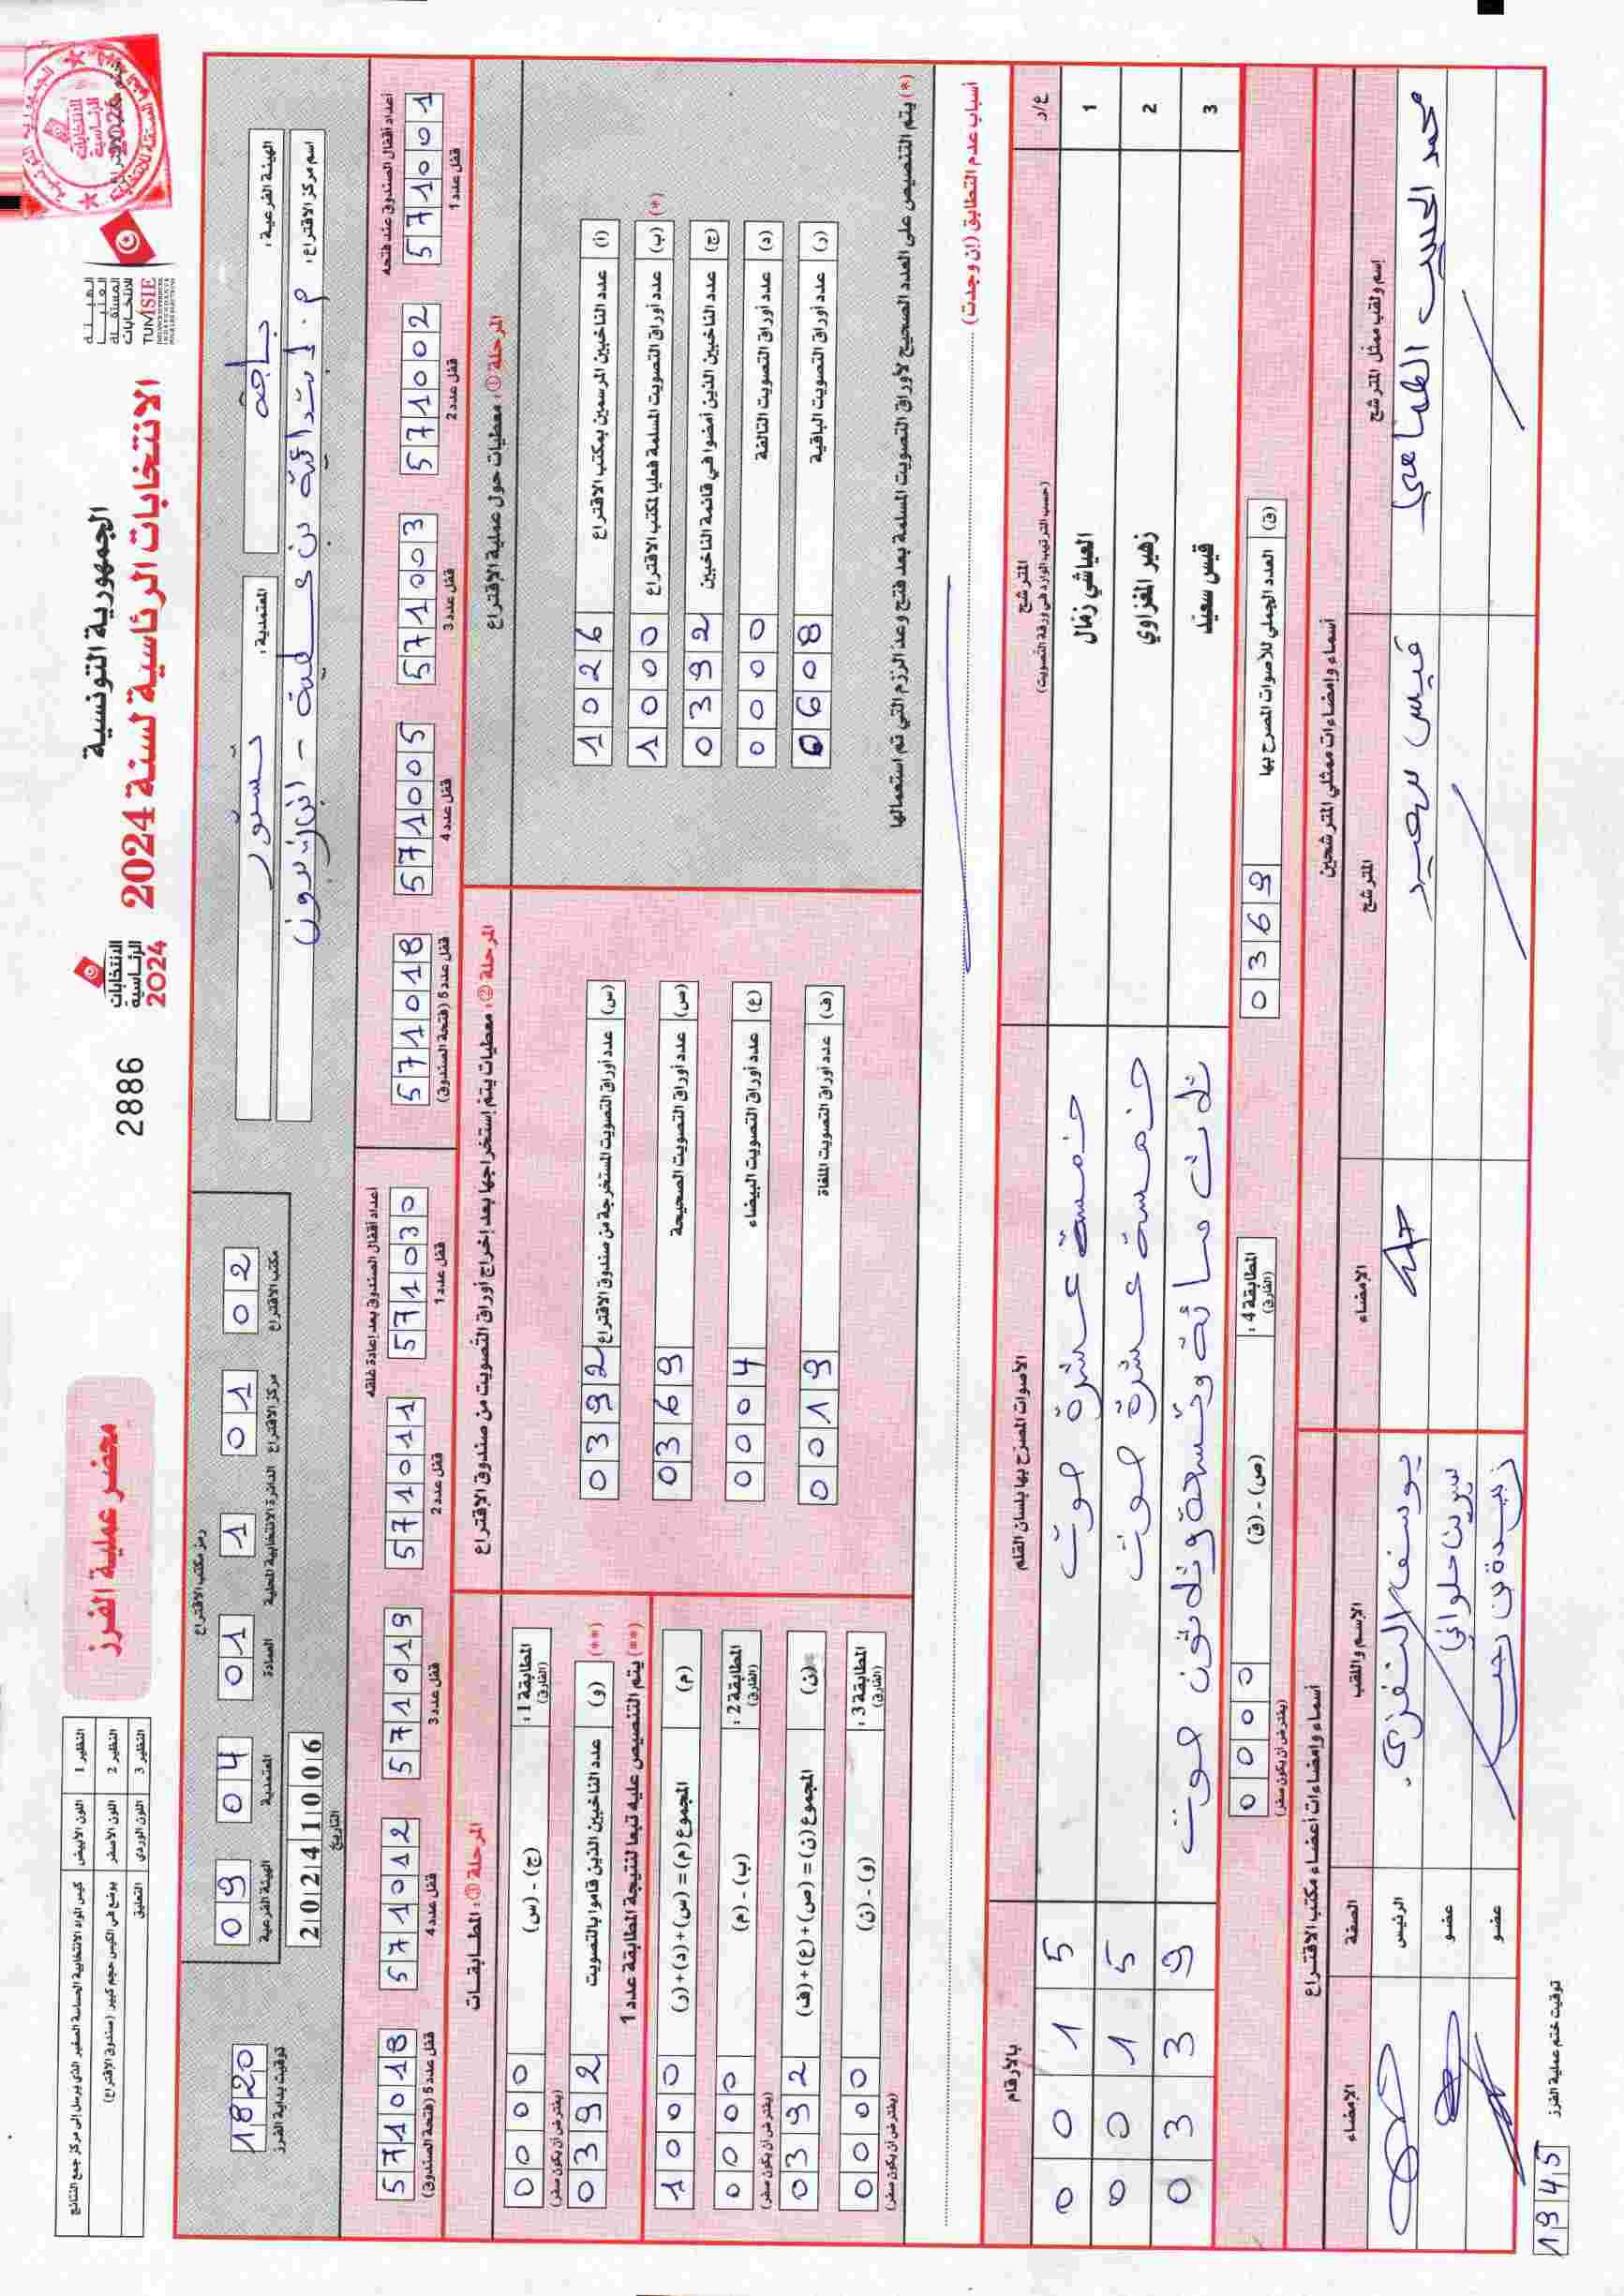 الجمهورية التونسية
الانتخابات الرئاسية لسنة 2024
الهيئة
العليا
المستقلة
للانتخابات
TUNISIE
الانتخابات
الرئاسية
2024
2886
محضر عملية الفرز
النظير 1 اللون الأبيض كيس المواد الانتخابية الحساسة الصغير الذي يرسل إلى مركز جمع النتائج
النظير 2 اللون الأصفر يوضع في الكيس حجم كبير (صندوق الاقتراع)
النظير 3 اللون الوردي التعليق
الهيئة الفرعية: باجة
المعتمدية: تستور
اسم مركز الاقتراع:
رمز مكتب الاقتراع
02 مكتب الاقتراع
01 مركز الاقتراع
1 الدائرة الانتخابية المحلية
01 العمادة
04 المعتمدية
09 الهيئة الفرعية
20241006
التاريخ
1820
توقيت بداية الفرز
أعداد أقفال الصندوق عند فتحه
571001 قفل عدد 1
571002 قفل عدد 2
571003 قفل عدد 3
571005 قفل عدد 4
571018 قفل عدد 5 (فتحة الصندوق)
أعداد أقفال الصندوق بعد إعادة غلقه
571030 قفل عدد 1
571011 قفل عدد 2
571019 قفل عدد 3
571012 قفل عدد 4
571018 قفل عدد 5 (فتحة الصندوق)
المرحلة ①: معطيات حول عملية الاقتراع
(أ) عدد الناخبين المرسمين بمكتب الاقتراع 1026
(ب) عدد أوراق التصويت المسلمة فعليا لمكتب الاقتراع 1000 (*)
(ج) عدد الناخبين الذين أمضوا في قائمة الناخبين 0392
(د) عدد أوراق التصويت التالفة 0000
(ر) عدد أوراق التصويت الباقية 0608
(*) يتم التنصيص على العدد الصحيح لأوراق التصويت المسلمة بعد فتح وعد الرزم التي تم استعمالها
المرحلة ②: معطيات يتم إستخراجها بعد إخراج أوراق التصويت من صندوق الاقتراع
(س) عدد أوراق التصويت المستخرجة من صندوق الاقتراع 0392
(ص) عدد أوراق التصويت الصحيحة 0369
(ع) عدد أوراق التصويت البيضاء 0004
(ف) عدد أوراق التصويت الملغاة 0019
المرحلة ③: المطابقات
المطابقة 1: (الفارق) (ج) - (س) 0000
(يفترض أن يكون صفر)
(**) (و) عدد الناخبين الذين قاموا بالتصويت 0392
(**) يتم التنصيص عليه تبعا لنتيجة المطابقة عدد 1
(م) المجموع (م) = (س)+(د)+(ر) 1000
المطابقة 2: (الفارق) (ب) - (م) 0000
(يفترض أن يكون صفر)
(ن) المجموع (ن) = (ص)+(ع)+(ف) 0392
المطابقة 3: (الفارق) (و) - (ن) 0000
(يفترض أن يكون صفر)
أسباب عدم التطابق (إن وجدت)
ع/ر المترشح (حسب الترتيب الوارد في ورقة التصويت) الأصوات المصرح بها بلسان القلم بالأرقام
1 العياشي زمال خمسة عشرة صوت 0015
2 زهير المغزاوي خمسة عشرة صوت 0015
3 قيس سعيد ثلاث مائة وتسعة وثلاثون صوت 0339
(ق) العدد الجملي للأصوات المصرح بها 0369
المطابقة 4: (الفارق) (ص) - (ق) 0000
(يفترض أن يكون صفر)
أسماء وإمضاءات ممثلي المترشحين
إسم ولقب ممثل المترشح المترشح الإمضاء
محمد الحبيب الطناحي قيس سعيد
أسماء وإمضاءات أعضاء مكتب الاقتراع
الإسم واللقب الصفة الإمضاء
يوسف النفزي الرئيس
سيرين حلواني عضو
زبيدة بن رجب عضو
1945 توقيت ختم عملية الفرز